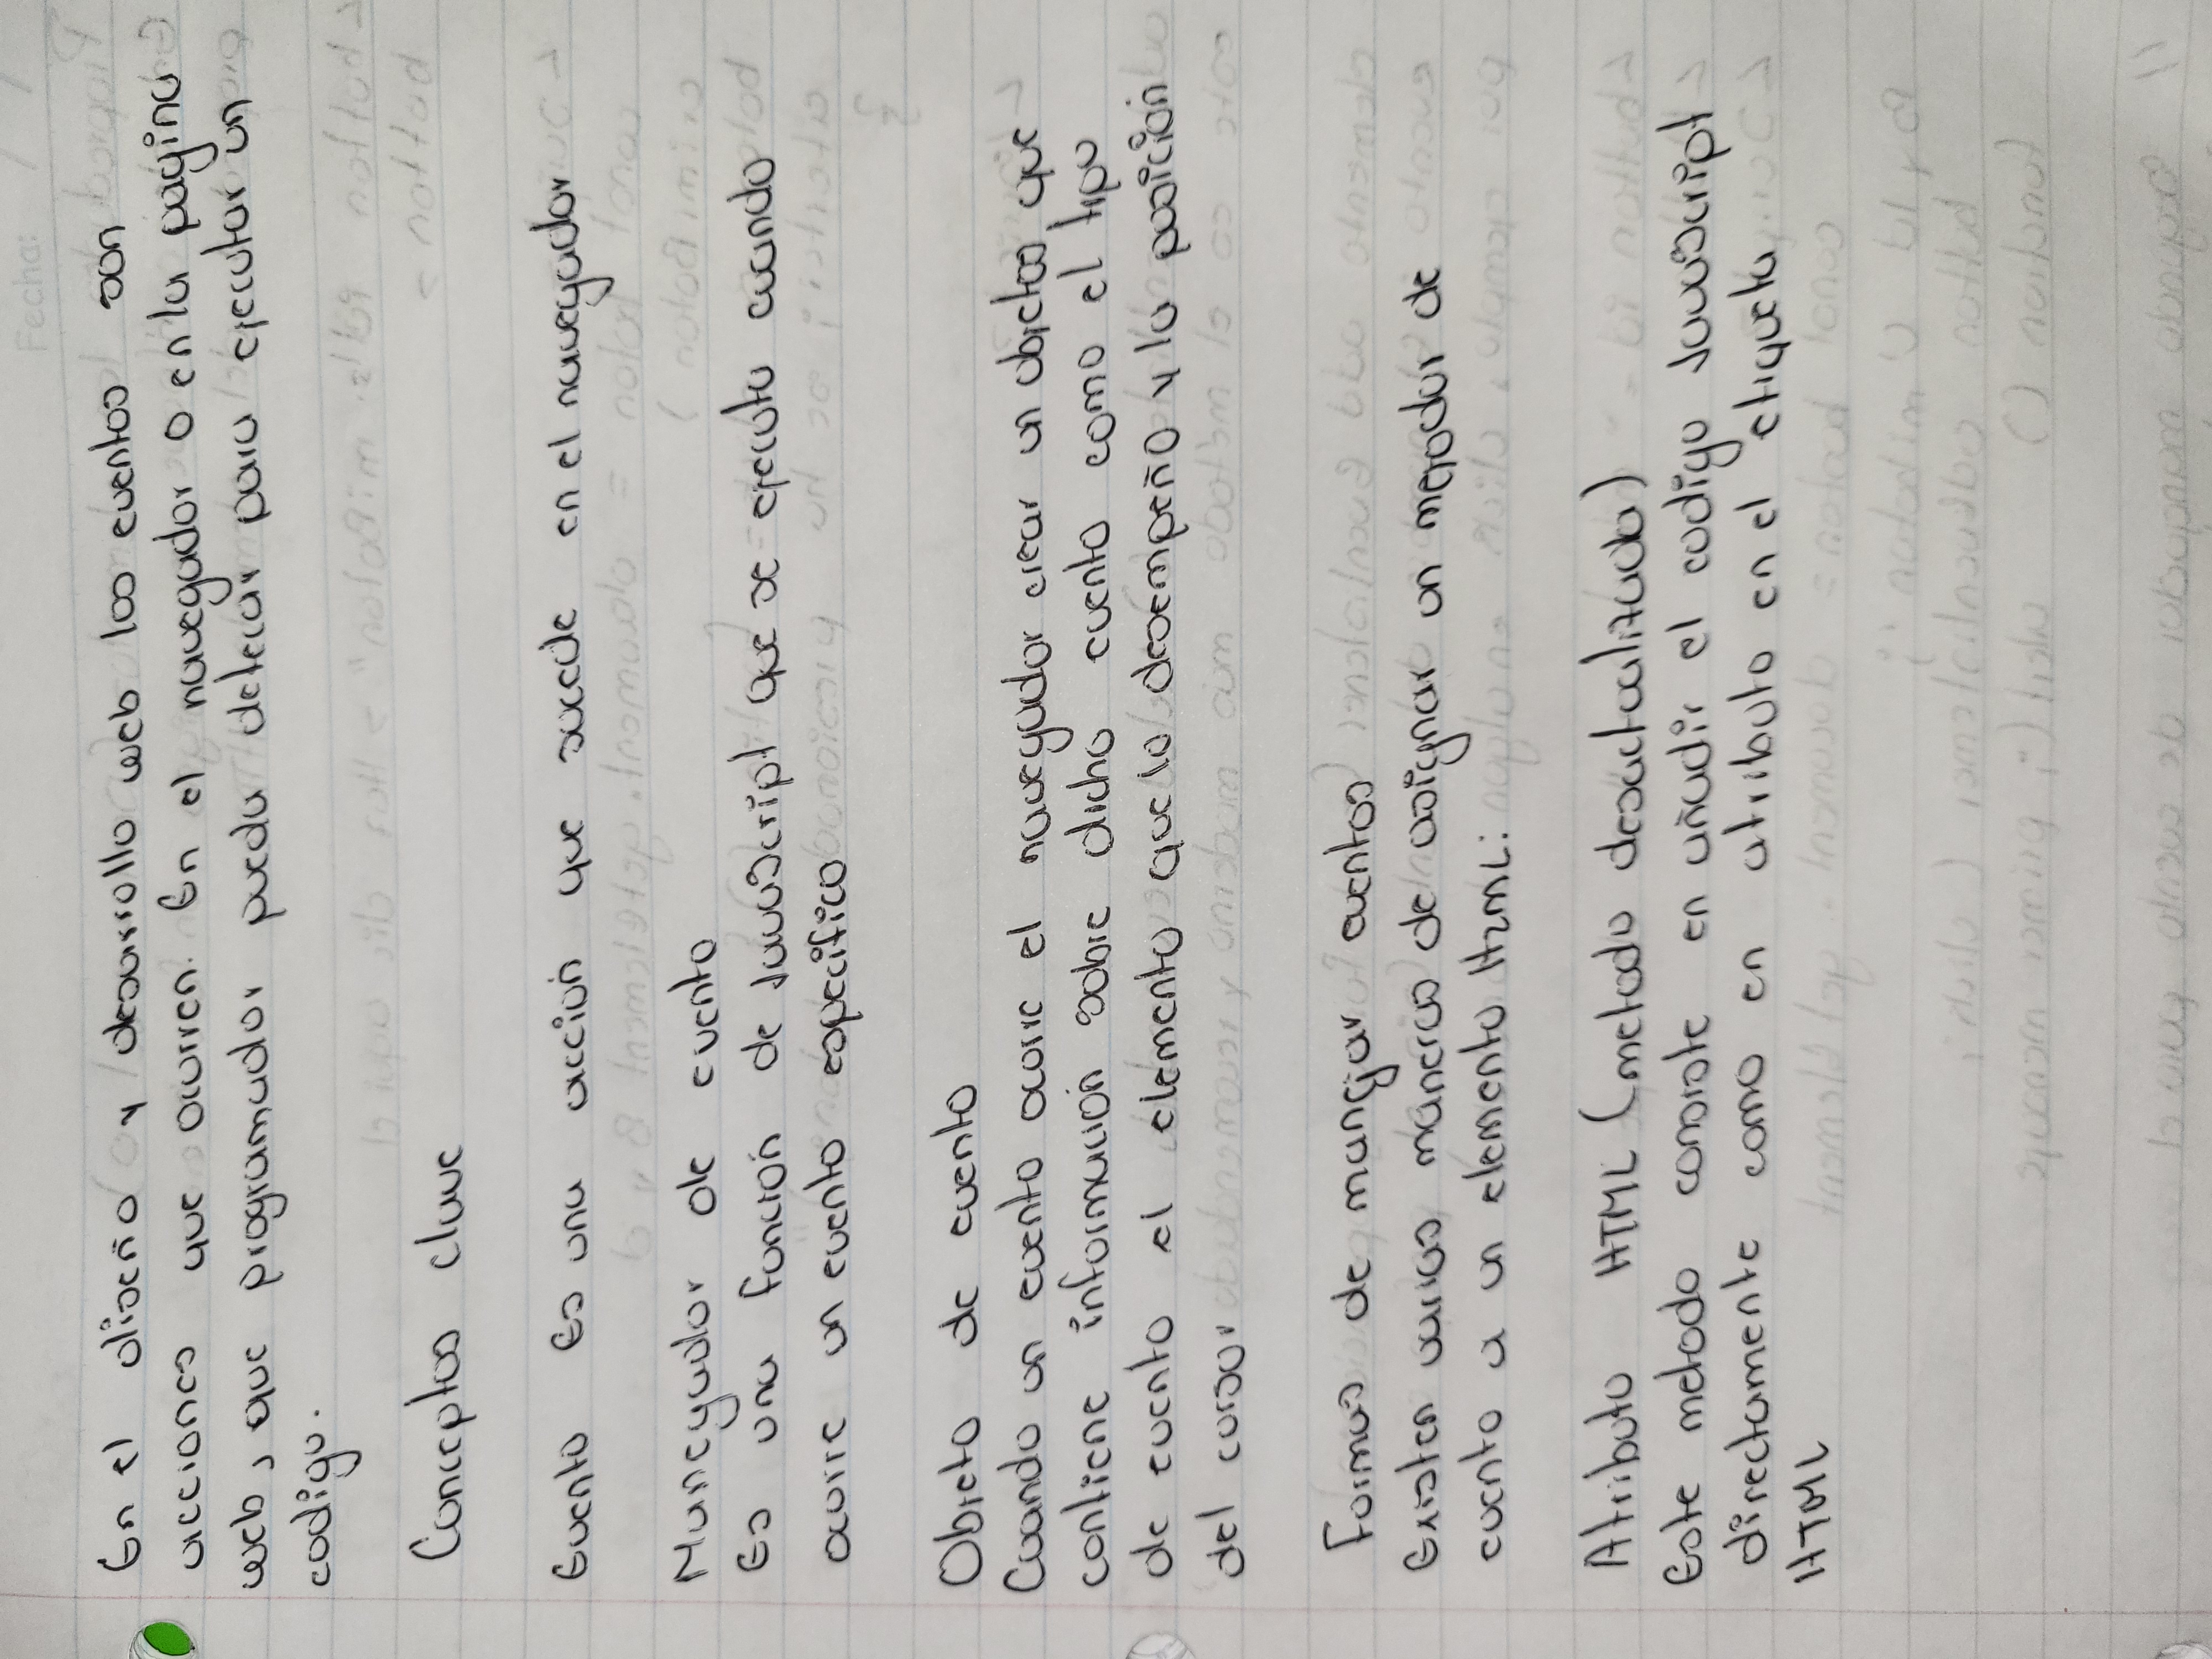 Fecha: / /
En el diseño y desarrollo web los eventos son
acciones que ocurren. En el navegador o en la pagina
web, que programador pueda detecar para ejecutar un
codigo.
Conceptos clave
Evento Es una acción que sucede en el navegador
Maneyador de evento
Es una función de JavaScript que se ejecuta cuando
ocurre un evento especifico
Objeto de evento
Cuando un evento ocorre el navegador crear un objetos que
contiene información sobre dicho evento como el tipo
de evento el elemento que lo desempeño y la posición
del cursor
Formas de manejar eventos
Existen varias maneras de asignar un de
evento a un elemento HTML:
Atributo HTML (metodo desactualizado)
Este metodo consiste en añadir el codigo JavaScript
directamente como en atributo en el etiqueta
HTML